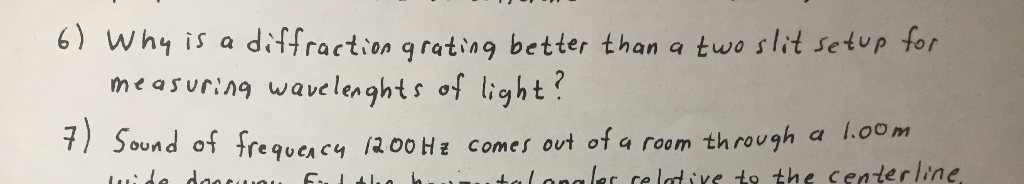 6) Why is a diffraction grating better than a two slit setup for
measuring wavelenghts of light?
7) Sound of frequency 1200 Hz comes out of a room through a 1.00m
relative to the centerline.